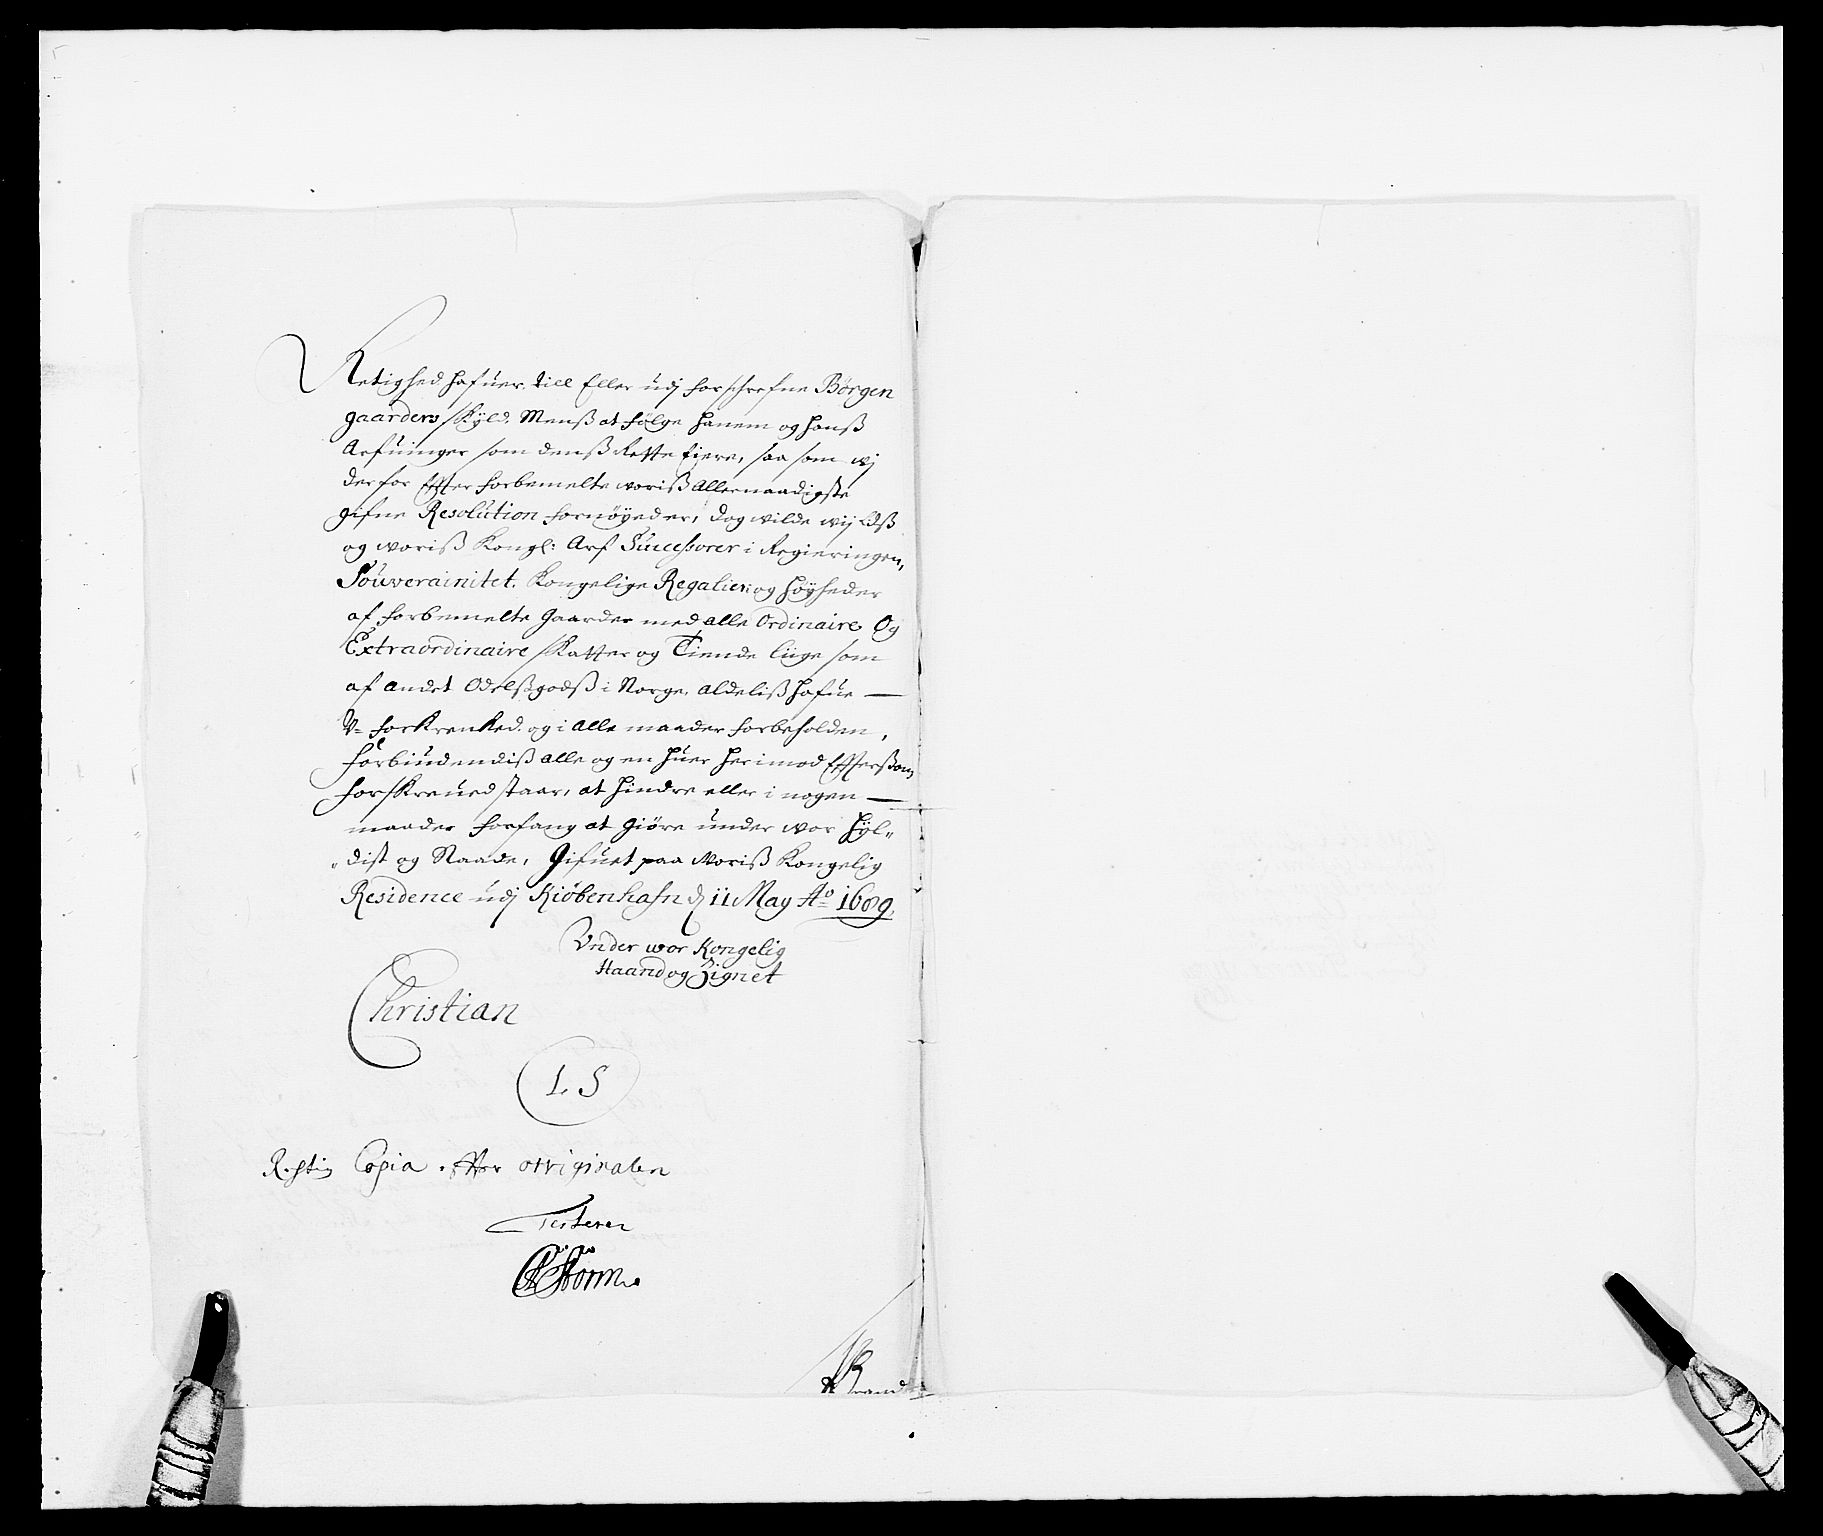 Retighed hafuer till Eller udj forschrefne Börgen
gaarders skyld, Menß at følge hanem og hanß
Arfuinger som denß Rette Eiere, saa som wj
derfor Effter forbemelte woriß Allernaadigste
gifne Resolution fornøyed er, dog wilde wij Oß
og woriß Kongl: Arf Successorer i Regieringen,
Souverainitet. Kongelige Regalier og Høyheder
af forbemelte gaarder med alle Ordinaire Og
Extraordinaire skatter og Tiende liige som
af andet Odelßgodß i Norge, aldeliß hafue —
V- forkrenked. og i alle maader forbeholden,
forbiudendiß alle og en huer herimod Effterßom
forskreued staar, at hindre eller i nogen —
maader forfang at giöre under wor hyl„
„dist og Naade, Gifuet paa Woriß Kongelig
Residence udj Kiöbenhafn d 11 May Ao 1689,
Vnder wor Kongelig
Haand og Zignet
Christian
L. S
Rigtig Copia effter originalen
Testerer